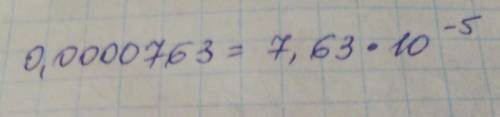 0,0000763 = 7,63 • 10⁻⁵